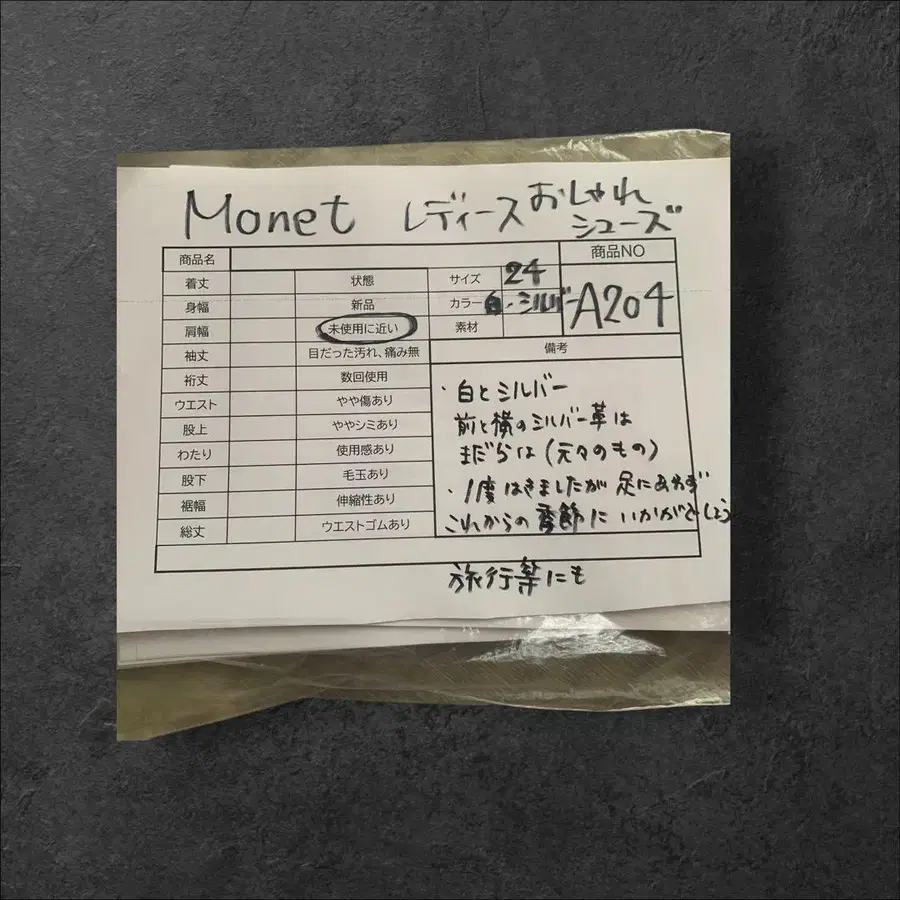 Monet レディースおしゃれ
シューズ
商品名 商品NO
着丈 状態 サイズ 24
身幅 新品 カラー 白・シルバー A204
肩幅 未使用に近い 素材
袖丈 目だった汚れ、痛み無 備考
裄丈 数回使用
ウエスト やや傷あり
股上 ややシミあり
わたり 使用感あり
股下 毛玉あり
裾幅 伸縮性あり
総丈 ウエストゴムあり
・白とシルバー
前と横のシルバー革は
まだらは(元々のもの)
・1度はきましたが足にあわず
これからの季節にいかがでしょう
旅行等にも